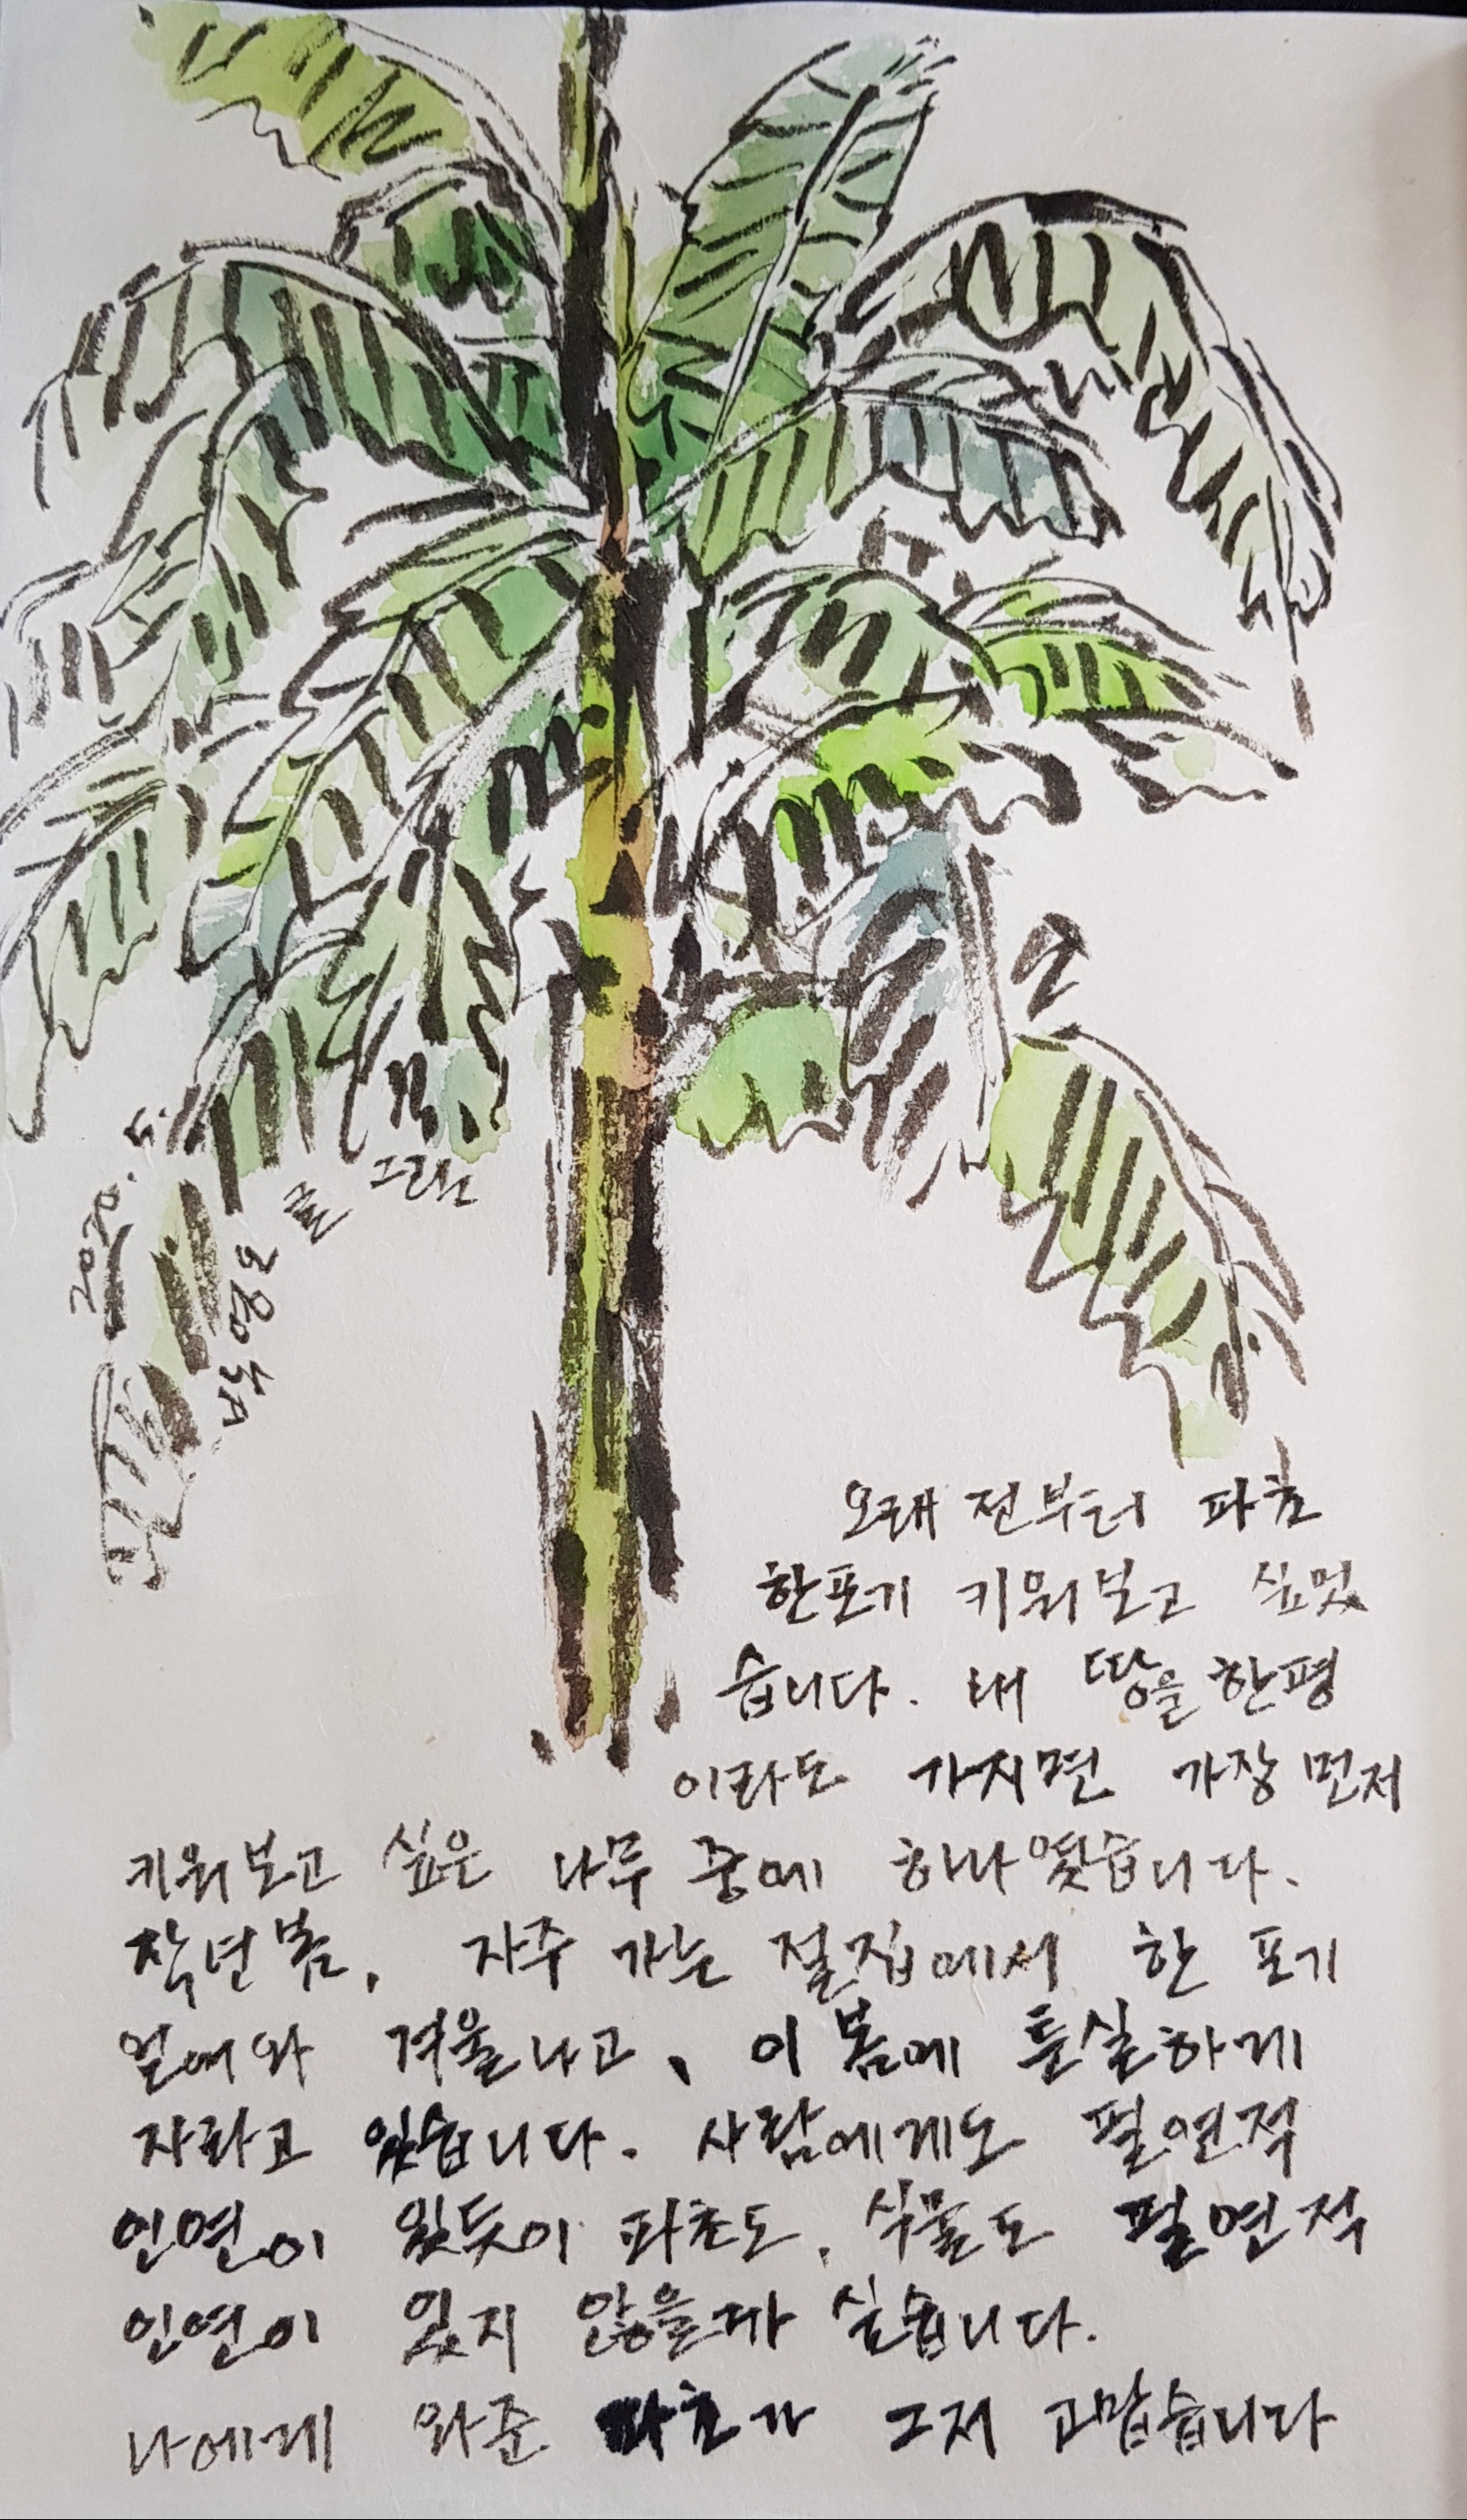 2020. 5.
글 그림
오래 전부터 파초
한포기 키워보고 싶었
습니다. 내 땅을 한평
이라도 가지면 가장 먼저
키워보고 싶은 나무 중에 하나였습니다.
작년 봄, 자주 가는 절집에서 한 포기
얻어와 겨울나고, 이 봄에 튼실하게
자라고 있습니다. 사람에게도 필연적
인연이 있듯이 파초도, 식물도 필연적
인연이 있지 않을까 싶습니다.
나에게 와준 파초가 그저 고맙습니다